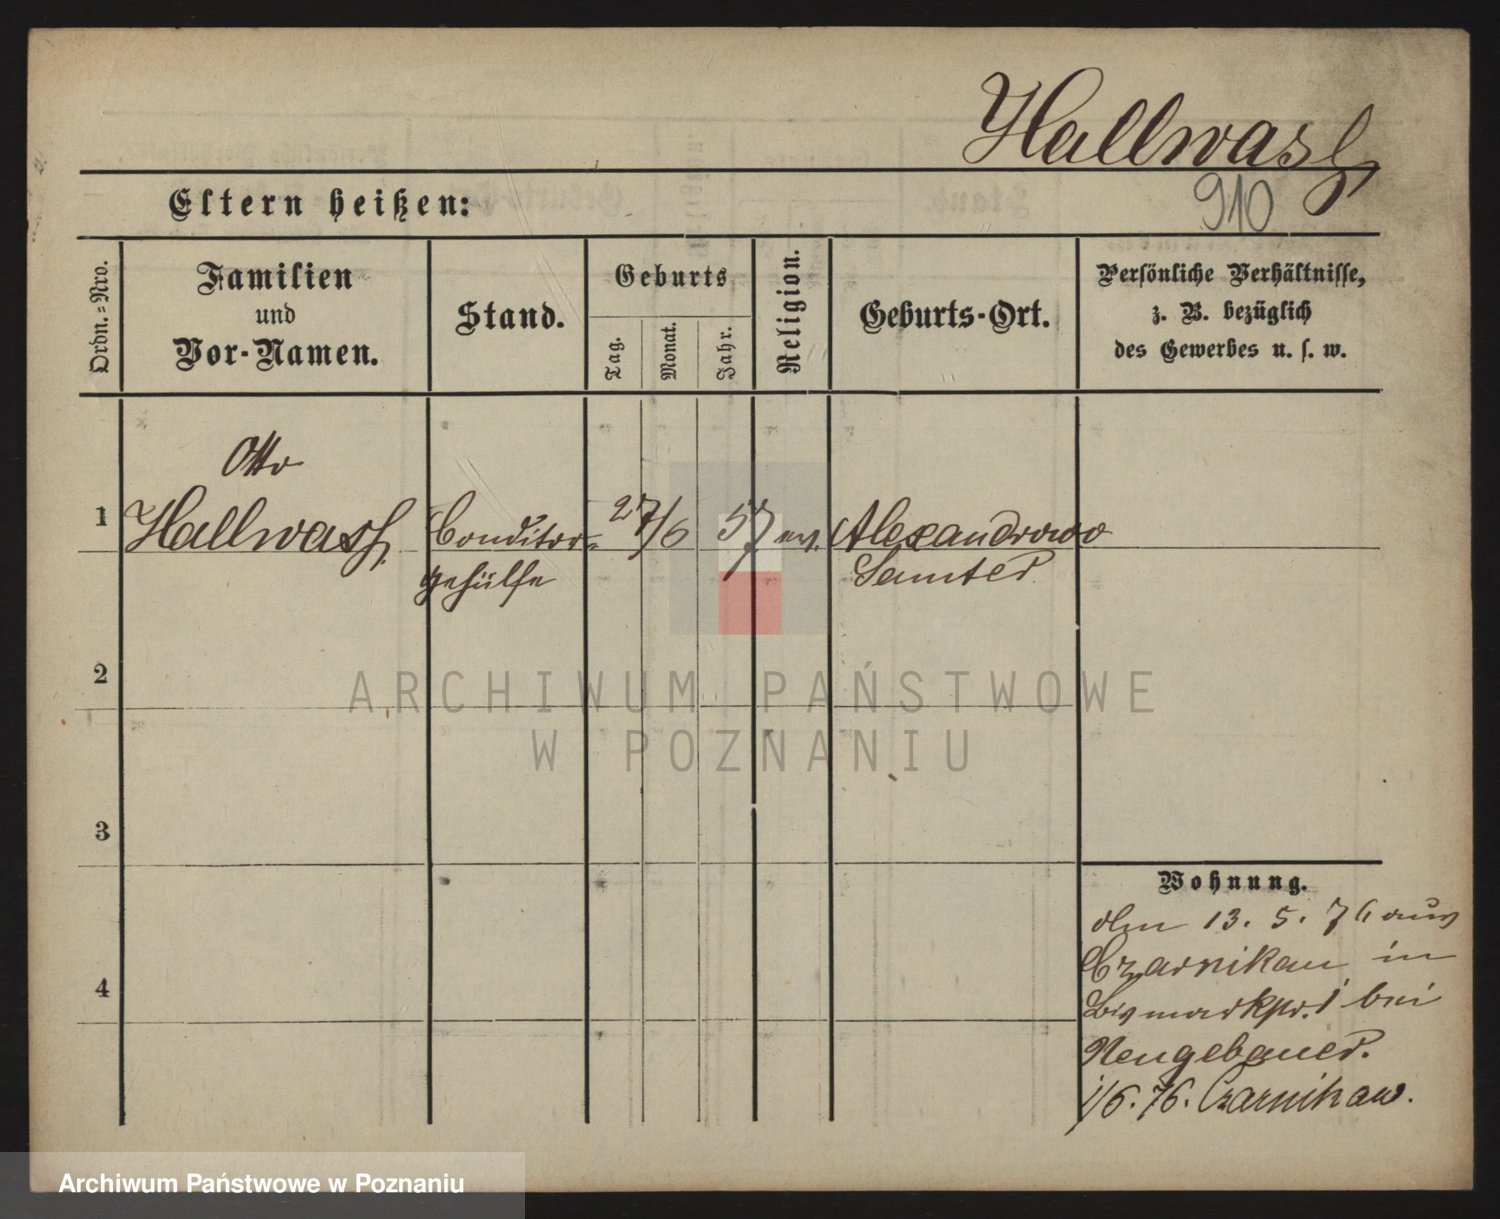 Hallwass
910
Eltern heißen:
Ordn.=Nro.
Familien
und
Vor-Namen.
Stand.
Geburts
Tag.
Monat.
Jahr.
Religion.
Geburts-Ort.
Persönliche Verhältnisse,
z. B. bezüglich
des Gewerbes u. s. w.
Otto
1
Hallwass
Conditor=
gehülfe
27/6
57
ev.
Alexandrowo
Samter
2
ARCHIWUM PAŃSTWOWE
W POZNANIU
3
Wohnung.
den 13. 5. 76 aus
Czarnikau in
Bismarkstr. 1 bei
4
Neugebauer.
1/6. 76. Czarnikau.
Archiwum Państwowe w Poznaniu